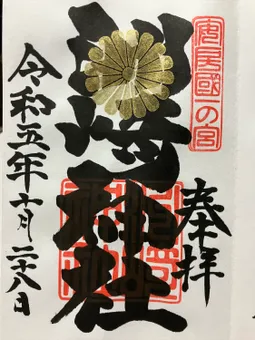 安房國一の宮
奉拝
洲崎神社
令和五年十月二十八日